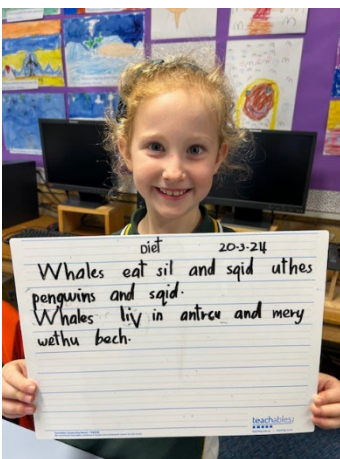 Diet 20-3-24
Whales eat sil and sqid uthes
pengwins and sqid.
Whales liv in antrcu and mery
wethu bech.
teachables